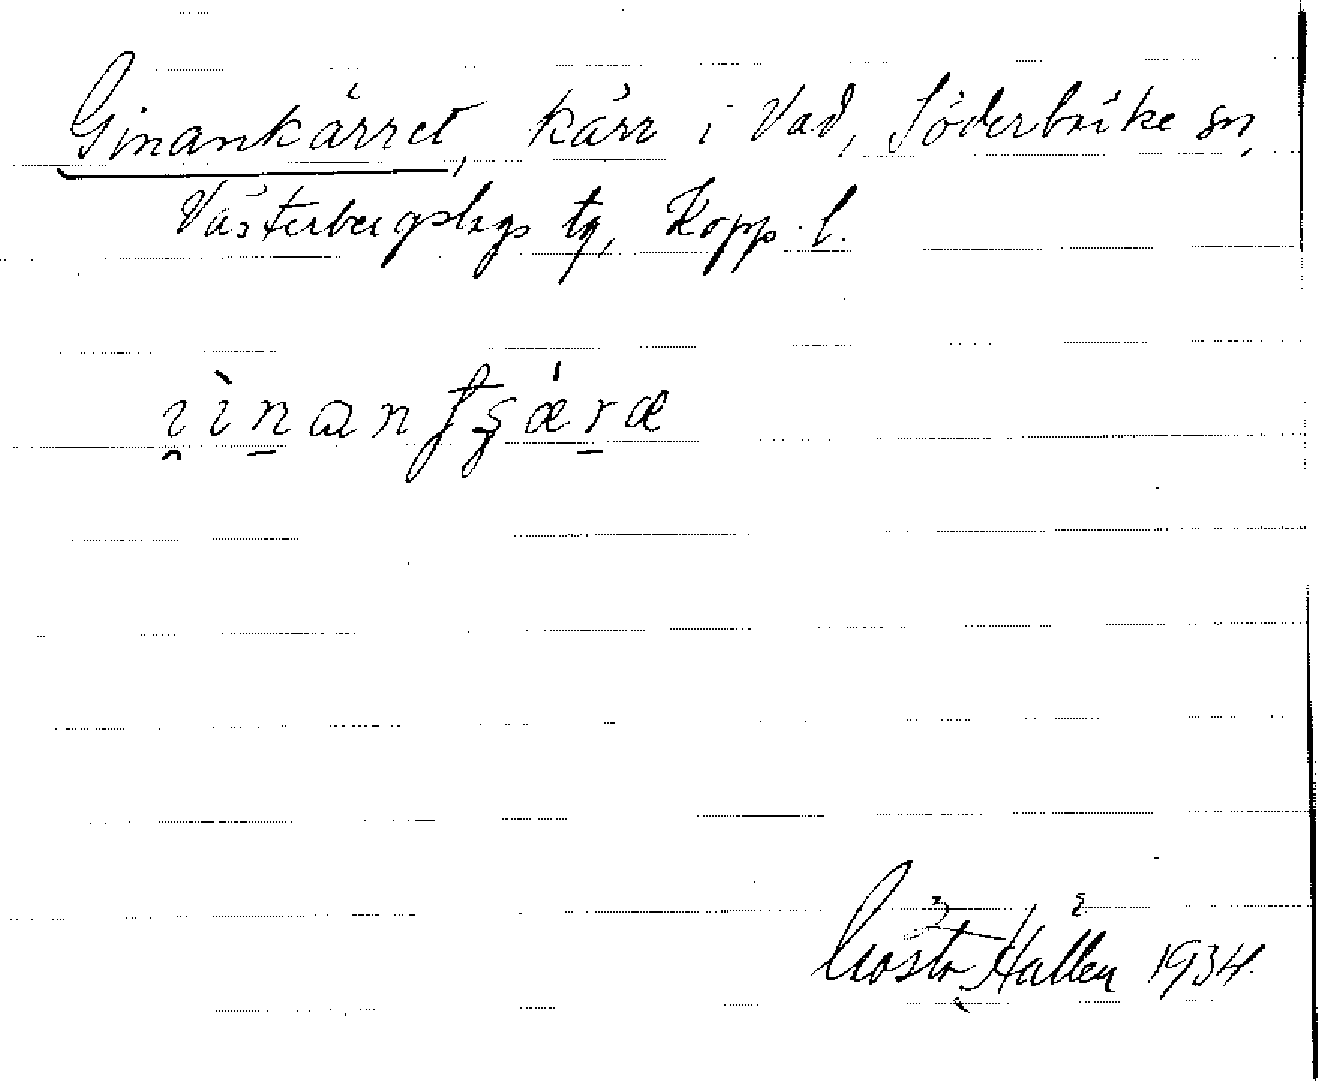 Ginankärret, kärr i Vad, Söderbärke sn,
Västerbergslags tg, Kopp. l.
Gösta Hallén 1934.